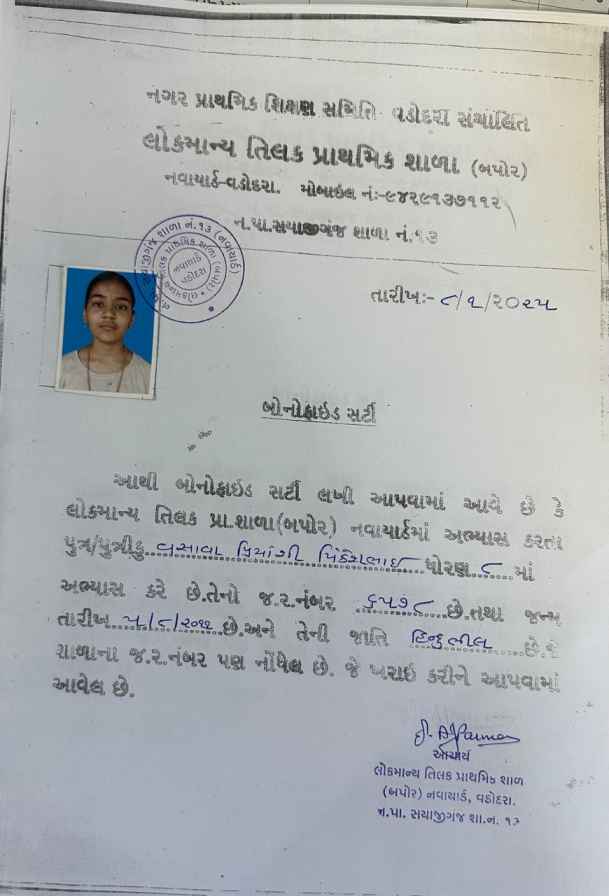 નગર પ્રાથમિક શિક્ષણ સમિતિ વડોદરા સંચાલિત
લોકમાન્ય તિલક પ્રાથમિક શાળા (બપોર)
નવાયાર્ડ-વડોદરા. મોબાઇલ નં:-૯૪૨૯૧૩૭૧૧૨
ન.પા.સયાજીગંજ શાળા નં.૧૩
તારીખ:- ૮/૧/૨૦૨૫
બોનોફાઇડ સર્ટી
આથી બોનોફાઇડ સર્ટી લખી આપવામાં આવે છે કે
લોકમાન્ય તિલક પ્રા.શાળા(બપોર) નવાયાર્ડમાં અભ્યાસ કરતા
પુત્ર/પુત્રીકુ. વસાવા પ્રિયાંશી પિંકેશભાઈ ધોરણ ૮ માં
અભ્યાસ કરે છે.તેનો જ.ર.નંબર ૬૫૭૮ છે.તથા જન્મ
તારીખ ૫/૮/૨૦૧૨ છે.અને તેની જાતિ હિન્દુ ભીલ છે.જે
શાળાના જ.ર.નંબર પણ નોંધેલ છે. જે ખરાઇ કરીને આપવામાં
આવેલ છે.
આચાર્ય
લોકમાન્ય તિલક પ્રાથમિક શાળા
(બપોર) નવાયાર્ડ, વડોદરા.
ન.પા. સયાજીગંજ શા.નં. ૧૩